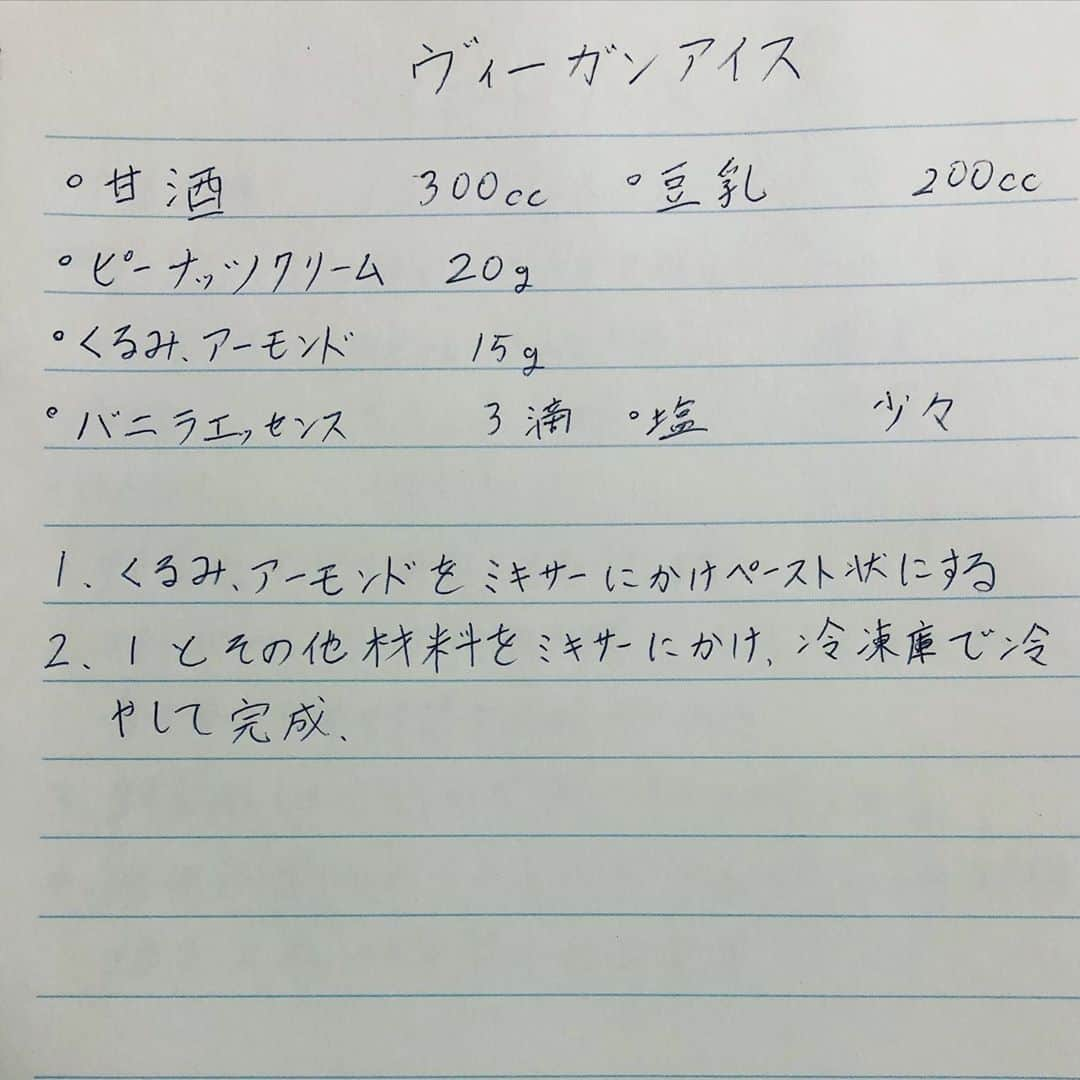 ヴィーガンアイス
°甘酒 300cc °豆乳 200cc
°ピーナッツクリーム 20g
°くるみ、アーモンド 15g
°バニラエッセンス 3滴 °塩 少々
1、くるみ、アーモンドをミキサーにかけペースト状にする
2、1とその他材料をミキサーにかけ、冷凍庫で冷
やして完成、